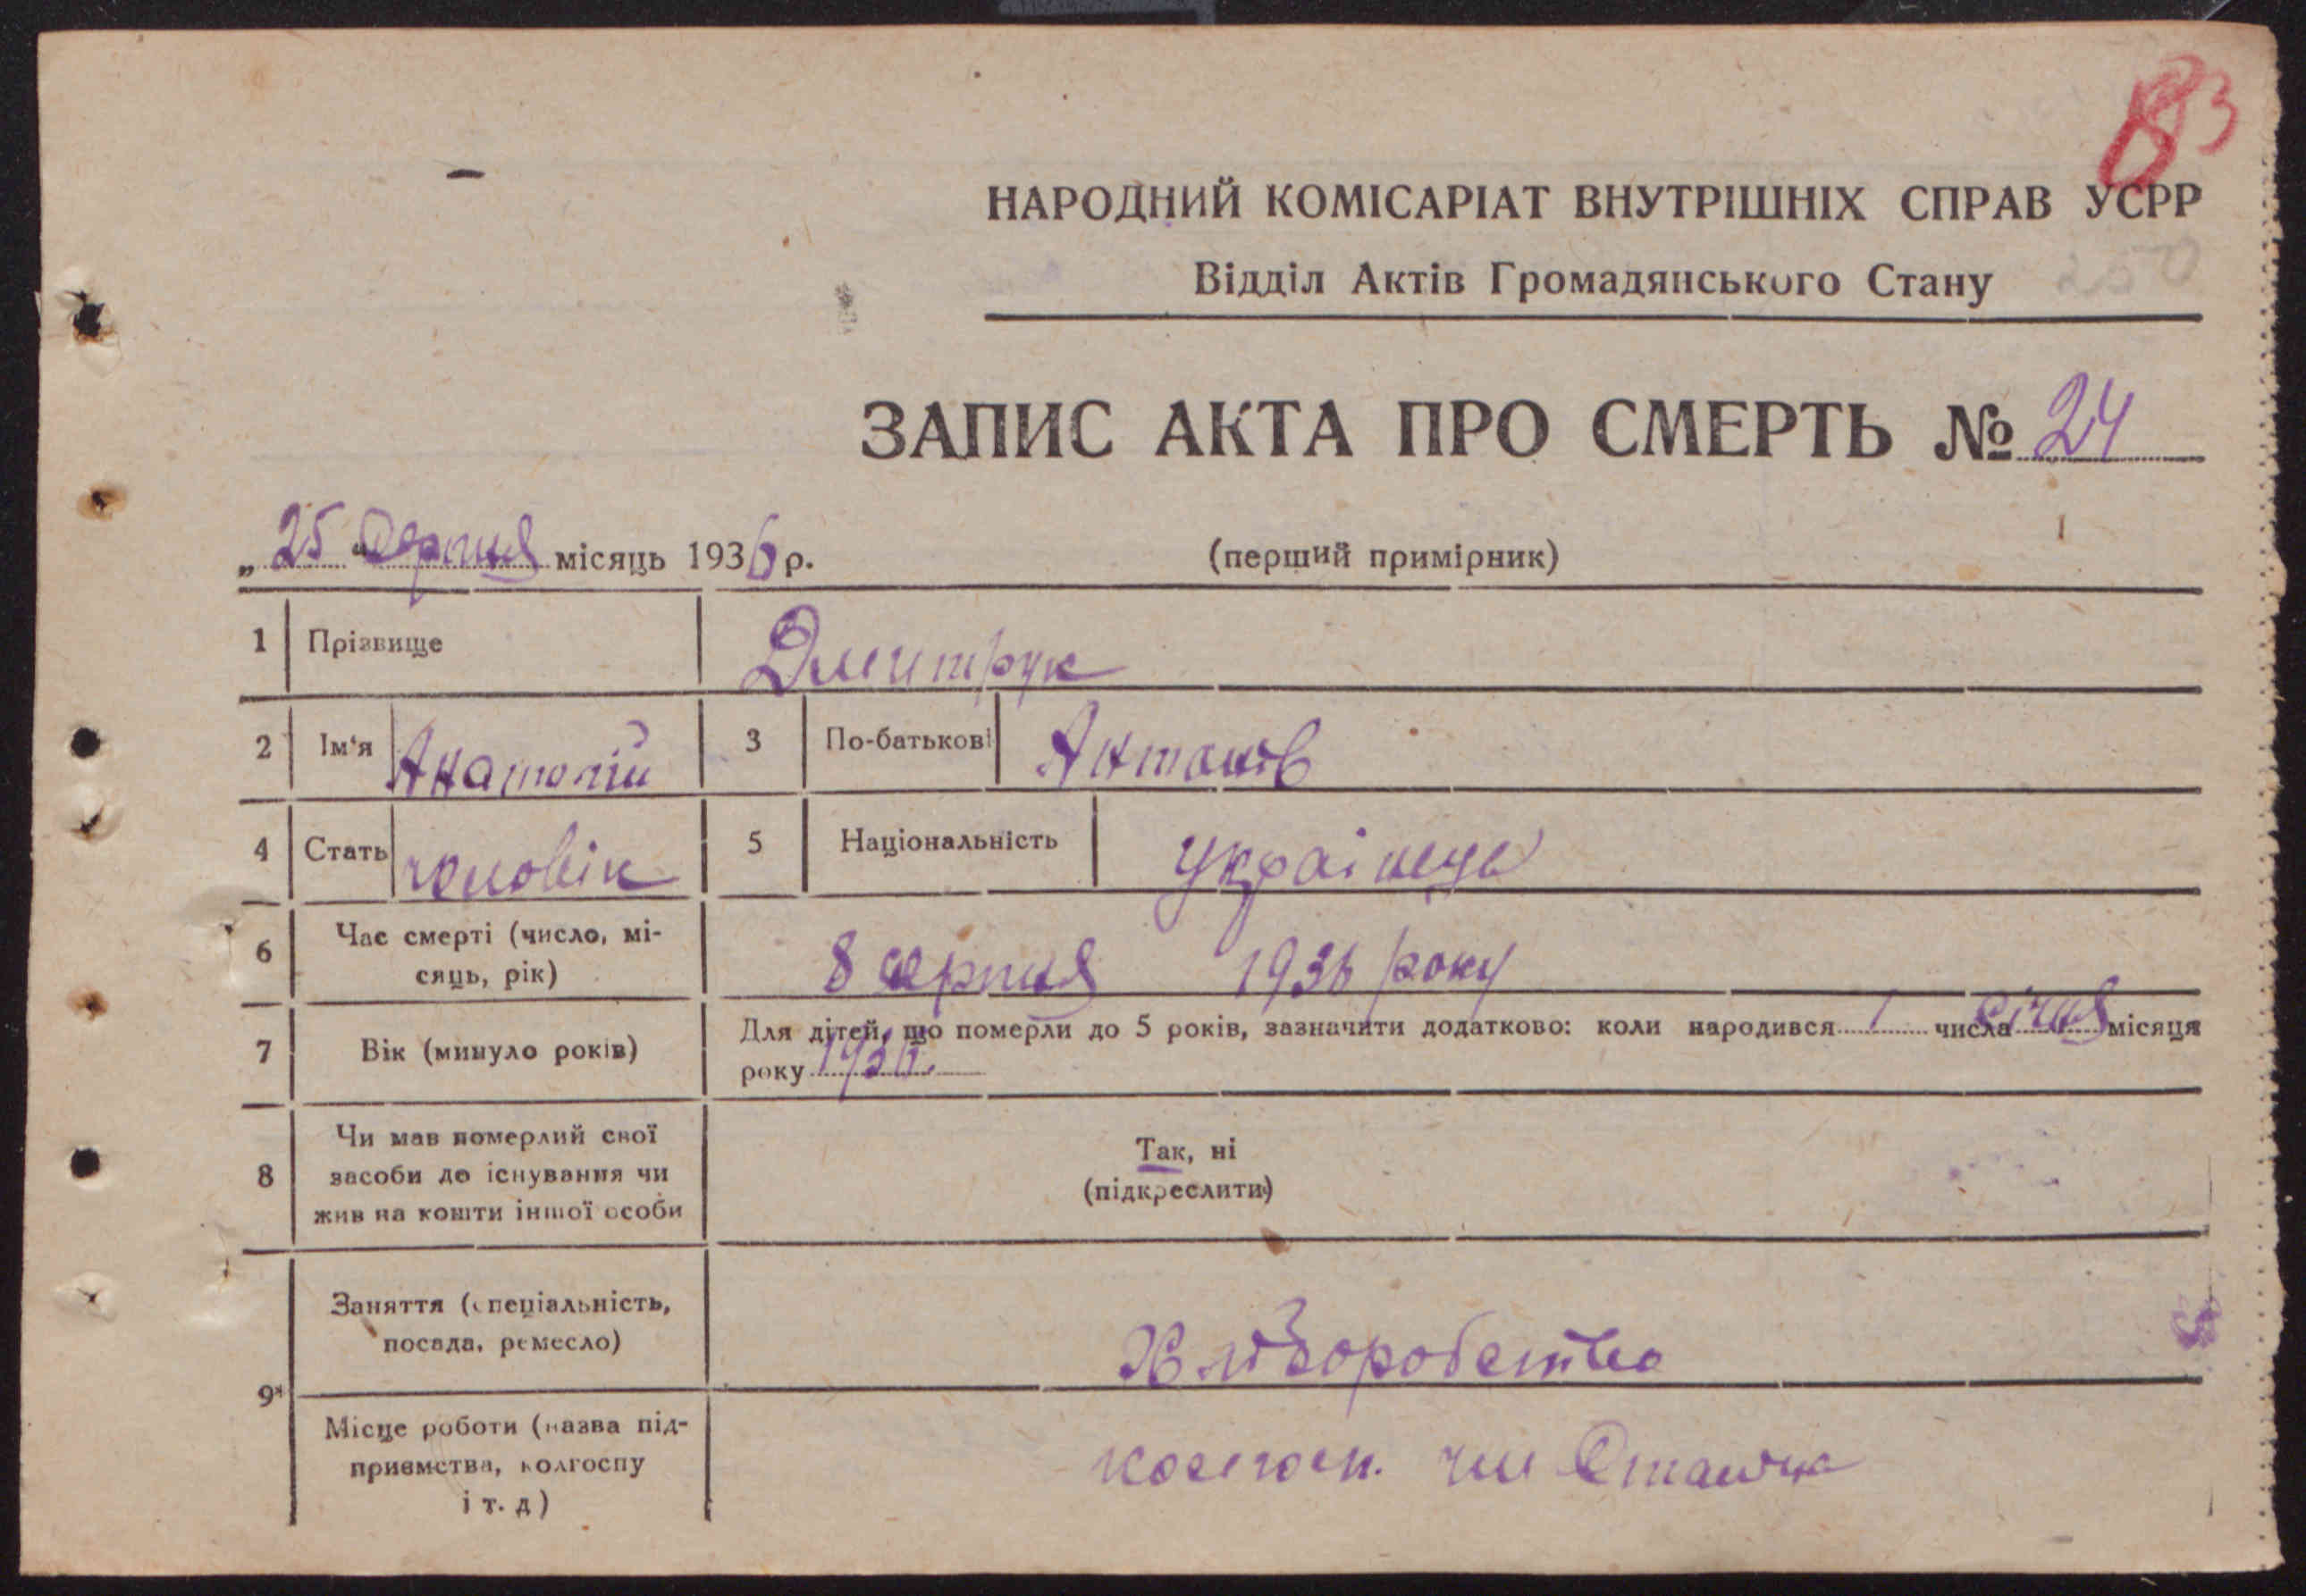 83
НАРОДНИЙ КОМІСАРІАТ ВНУТРІШНІХ СПРАВ УСРР
Відділ Актів Громадянського Стану
250
ЗАПИС АКТА ПРО СМЕРТЬ № 24
„25“ Серпня місяць 1936 р.
(перший примірник)
1 Прізвище Дмитрук
2 Ім'я Анатолій 3 По-батькові Антонів
4 Стать чоловік 5 Національність Українець
6 Час смерті (число, мі-
сяць, рік) 8 серпня 1936 року
7 Вік (минуло років) Для дітей, що померли до 5 років, зазначити додатково: коли народився 1 числа січня місяця
року 1936.
8 Чи мав померлий свої
засоби до існування чи
жив на кошти іншої особи
Так, ні
(підкреслити)
9 Заняття (спеціальність,
посада, ремесло) Хліборобство
Місце роботи (назва під-
приємства, колгоспу
і т. д) колгосп. Сталіна